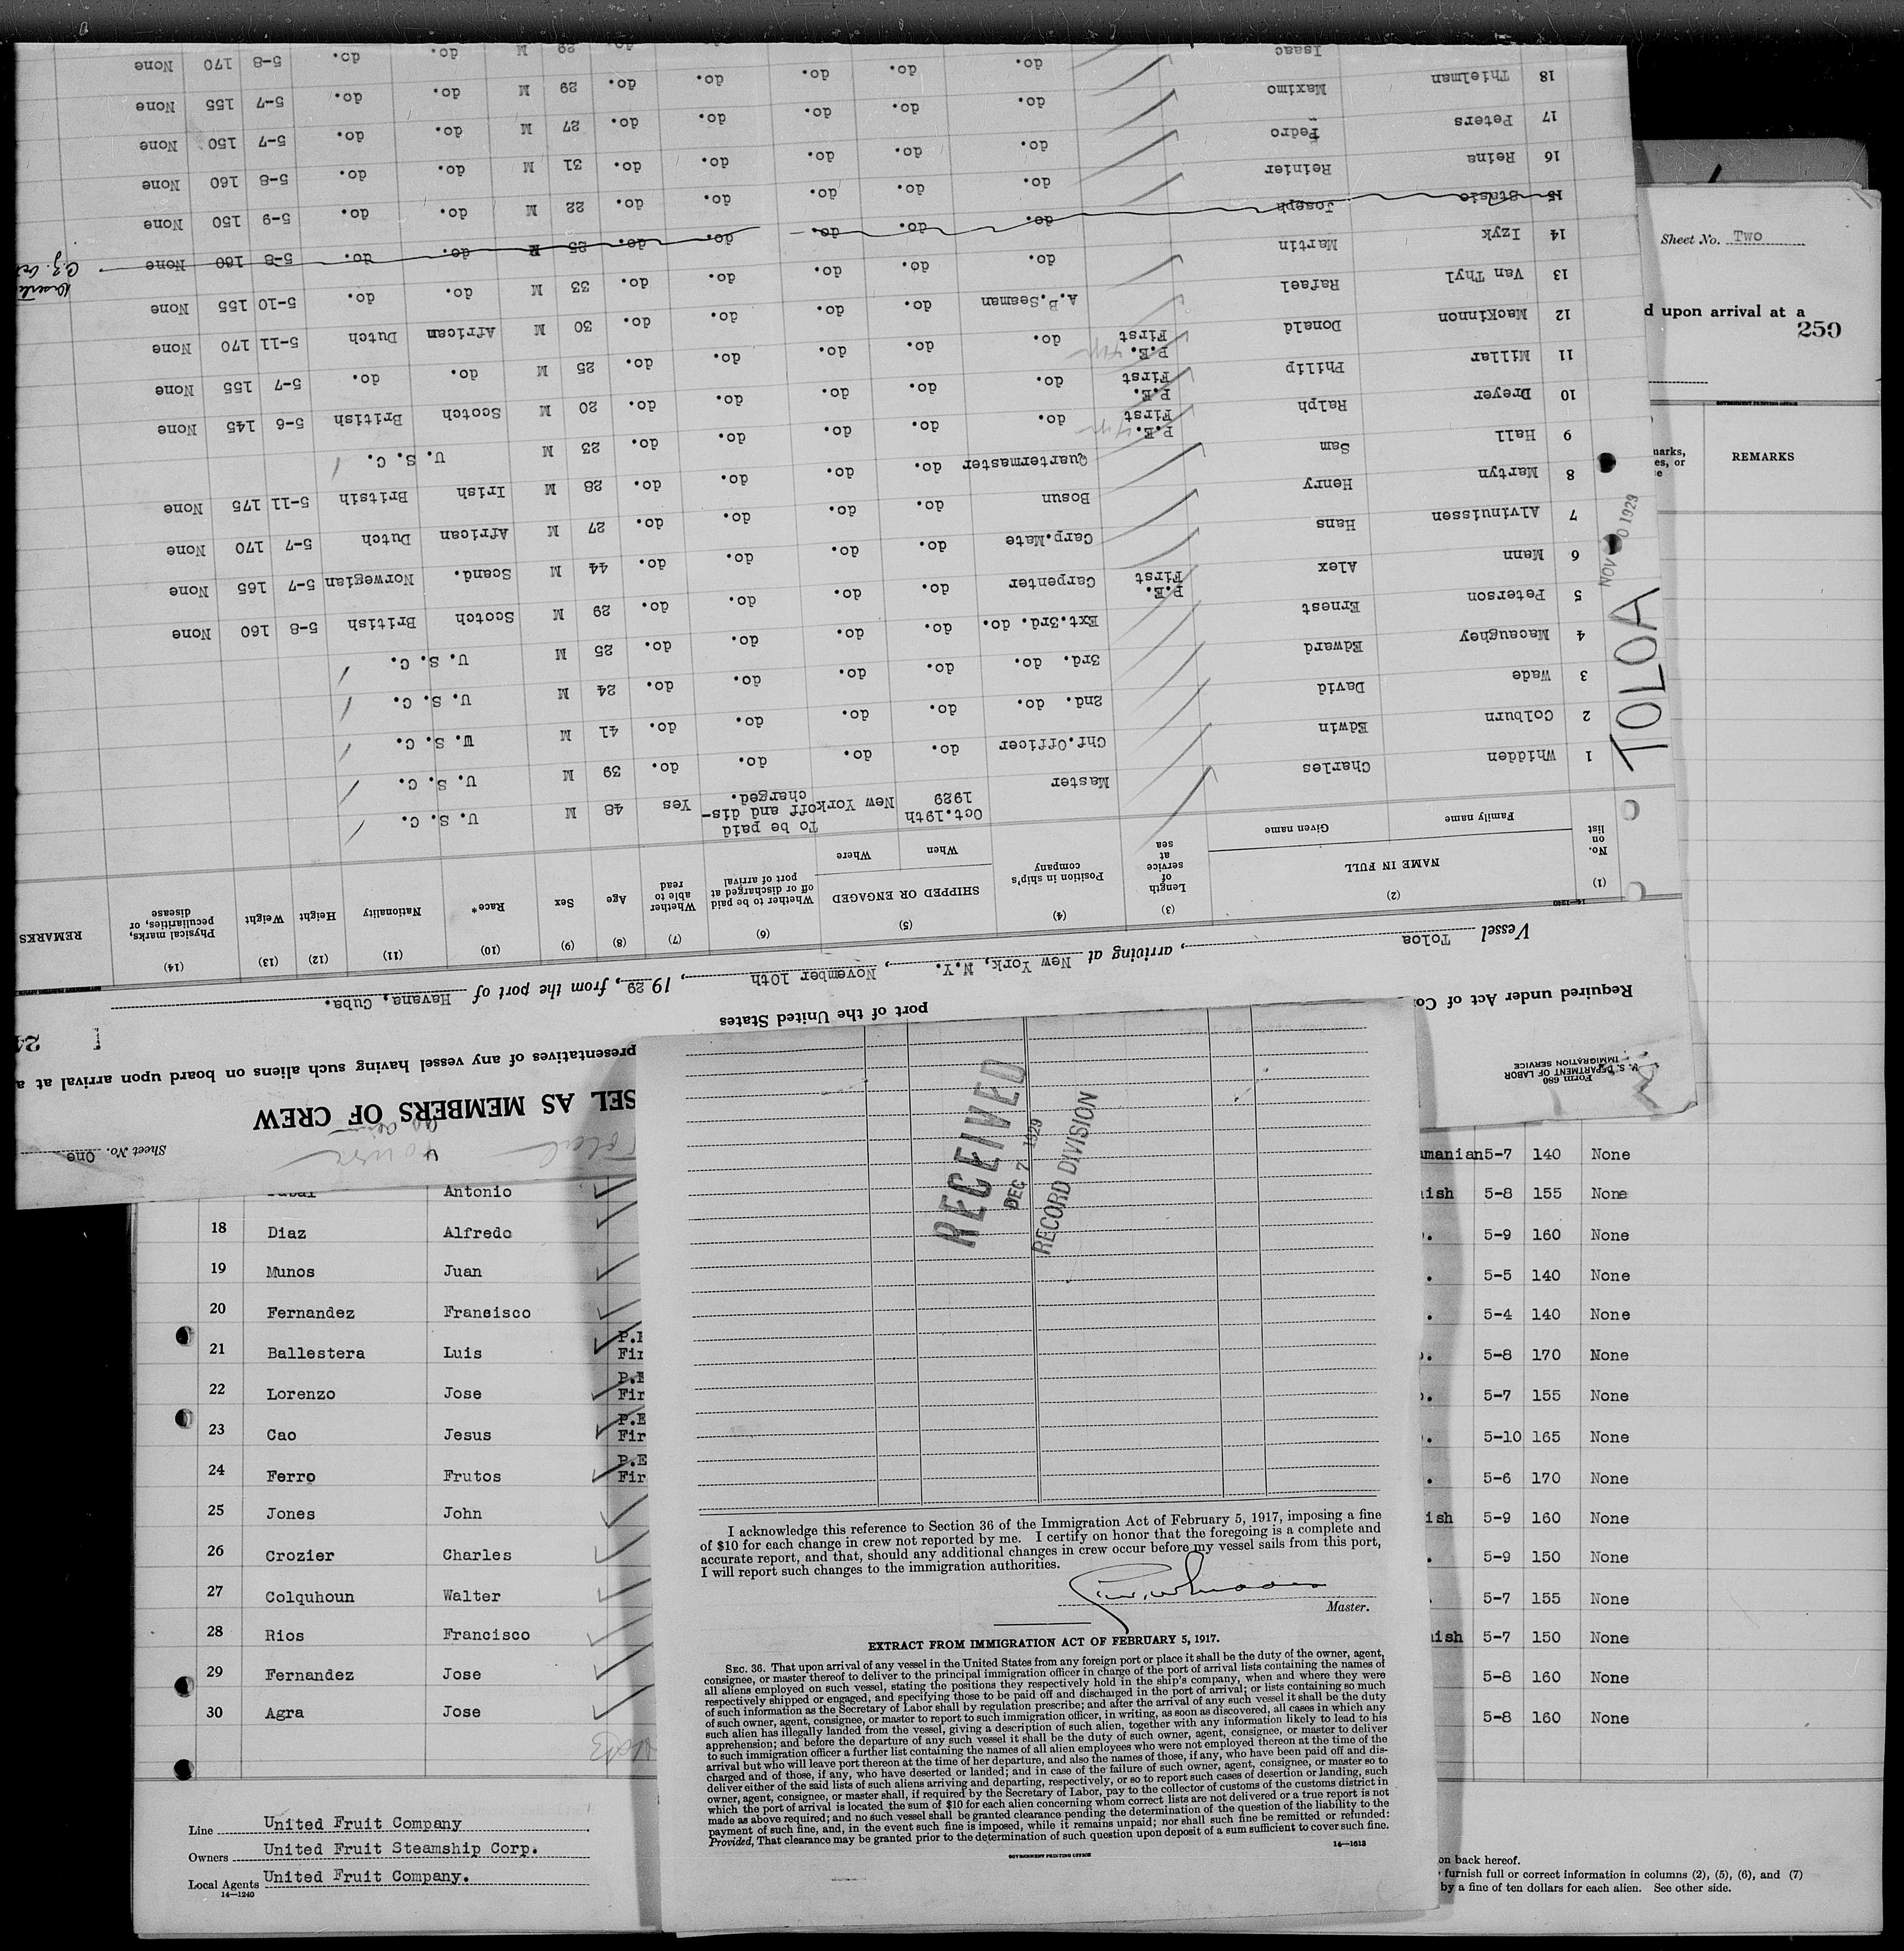 Sheet No. One
SEL AS MEMBERS OF CREW
presentatives of any vessel having such aliens on board upon arrival at a
Form 680
U. S. DEPARTMENT OF LABOR
IMMIGRATION SERVICE
Required under Act of Co
port of the United States
Vessel Toloa, arriving at New York, N.Y., November 10th, 1929, from the port of Havana, Cuba.
14-1240
(1) (2) (3) (4) (5) (6) (7) (8) (9) (10) (11) (12) (13) (14)
No. on list NAME IN FULL Family name Given name Length of service at sea Position in ship's company SHIPPED OR ENGAGED When Where Whether to be paid off or discharged at port of arrival Whether able to read Age Sex Race* Nationality Height Weight Physical marks, peculiarities, or disease REMARKS
1 Whidden Charles Master Oct.19th 1929 New York To be paid off and dis-charged. Yes 48 M U. S. C.
2 Colburn Edwin Chf.Officer do. do. do. do. 39 M U. S. C.
3 Wade David 2nd. do. do. do. do. do. 41 M U. S. C.
4 Macaughey Edward 3rd. do. do. do. do. do. 24 M U. S. C.
5 Peterson Ernest Ext.3rd. do. do. do. do. do. 25 M U. S. C.
6 Mann Alex P.E. First Carpenter do. do. do. do. 29 M Scotch British 5-8 160 None
7 Alvinuissen Hans Carp.Mate do. do. do. do. 44 M Scand. Norwegian 5-7 165 None
8 Martyn Henry Bosun do. do. do. do. 27 M African Dutch 5-7 170 None
9 Hall Sam Quartermaster do. do. do. do. 28 M Irish Britsih 5-11 175 None
10 Dreyer Ralph P.E. First do. do. do. do. do. 23 M U. S. C.
11 Millar Philip P.E. First do. do. do. do. do. 20 M Scotch British 5-6 145 None
12 MacKinnon Donald P.E. First do. do. do. do. do. 25 M do. do. 5-7 155 None
13 Van Thyl Rafael A.B.Seaman do. do. do. do. 30 M African Dutch 5-11 170 None
14 Izyk Martin do. do. do. do. do. 33 M do. do. 5-10 155 None
15 Stasie Joseph do. do. do. do. do. 25 M do. do. 5-8 160 None
16 Reina Reinier do. do. do. do. do. 22 M do. do. 5-9 150 None
17 Peters Pedro do. do. do. do. do. 31 M do. do. 5-8 160 None
18 Thielman Maximo do. do. do. do. do. 27 M do. do. 5-7 150 None
Isaac do. do. do. do. do. 29 M do. do. 5-7 155 None
29 M do. do. 5-8 170 None
TOLOA
NOV 1929
Sheet No. Two
d upon arrival at a
250
GOVERNMENT PRINTING OFFICE
REMARKS
Antonio
18 Diaz Alfredo
19 Munos Juan
20 Fernandez Fransisco
21 Ballestera Luis
22 Lorenzo Jose
23 Cao Jesus
24 Ferro Frutos
25 Jones John
26 Crozier Charles
27 Colquhoun Walter
28 Rios Francisco
29 Fernandez Jose
30 Agra Jose
manian 5-7 140 None
ish 5-8 155 None
5-9 160 None
5-5 140 None
5-4 140 None
5-8 170 None
5-7 155 None
5-10 165 None
5-6 170 None
ish 5-9 160 None
5-9 150 None
5-7 155 None
ish 5-7 150 None
5-8 160 None
5-8 160 None
Line United Fruit Company
Owners United Fruit Steamship Corp.
Local Agents United Fruit Company.
14-1240
on back hereof.
furnish full or correct information in columns (2), (5), (6), and (7)
by a fine of ten dollars for each alien. See other side.
RECEIVED
DEC 7 1929
RECORD DIVISION
I acknowledge this reference to Section 36 of the Immigration Act of February 5, 1917, imposing a fine
of $10 for each change in crew not reported by me. I certify on honor that the foregoing is a complete and
accurate report, and that, should any additional changes in crew occur before my vessel sails from this port,
I will report such changes to the immigration authorities.
Master.
EXTRACT FROM IMMIGRATION ACT OF FEBRUARY 5, 1917.
SEC. 36. That upon arrival of any vessel in the United States from any foreign port or place it shall be the duty of the owner, agent,
consignee, or master thereof to deliver to the principal immigration officer in charge of the port of arrival lists containing the names of
all aliens employed on such vessel, stating the positions they respectively hold in the ship's company, when and where they were
respectively shipped or engaged, and specifying those to be paid off and discharged in the port of arrival; or lists containing so much
of such information as the Secretary of Labor shall by regulation prescribe; and after the arrival of any such vessel it shall be the duty
of such owner, agent, consignee, or master to report to such immigration officer, in writing, as soon as discovered, all cases in which any
such alien has illegally landed from the vessel, giving a description of such alien, together with any information likely to lead to his
apprehension; and before the departure of any such vessel it shall be the duty of such owner, agent, consignee, or master to deliver
to such immigration officer a further list containing the names of all alien employees who were not employed thereon at the time of the
arrival but who will leave port thereon at the time of her departure, and also the names of those, if any, who have been paid off and dis-
charged and of those, if any, who have deserted or landed; and in case of the failure of such owner, agent, consignee, or master so to
deliver either of the said lists of such aliens arriving and departing, respectively, or so to report such cases of desertion or landing, such
owner, agent, consignee, or master shall, if required by the Secretary of Labor, pay to the collector of customs of the customs district in
which the port of arrival is located the sum of $10 for each alien concerning whom correct lists are not delivered or a true report is not
made as above required; and no such vessel shall be granted clearance pending the determination of the question of the liability to the
payment of such fine, and, in the event such fine is imposed, while it remains unpaid; nor shall such fine be remitted or refunded:
Provided, That clearance may be granted prior to the determination of such question upon deposit of a sum sufficient to cover such fine.
GOVERNMENT PRINTING OFFICE
14-1613